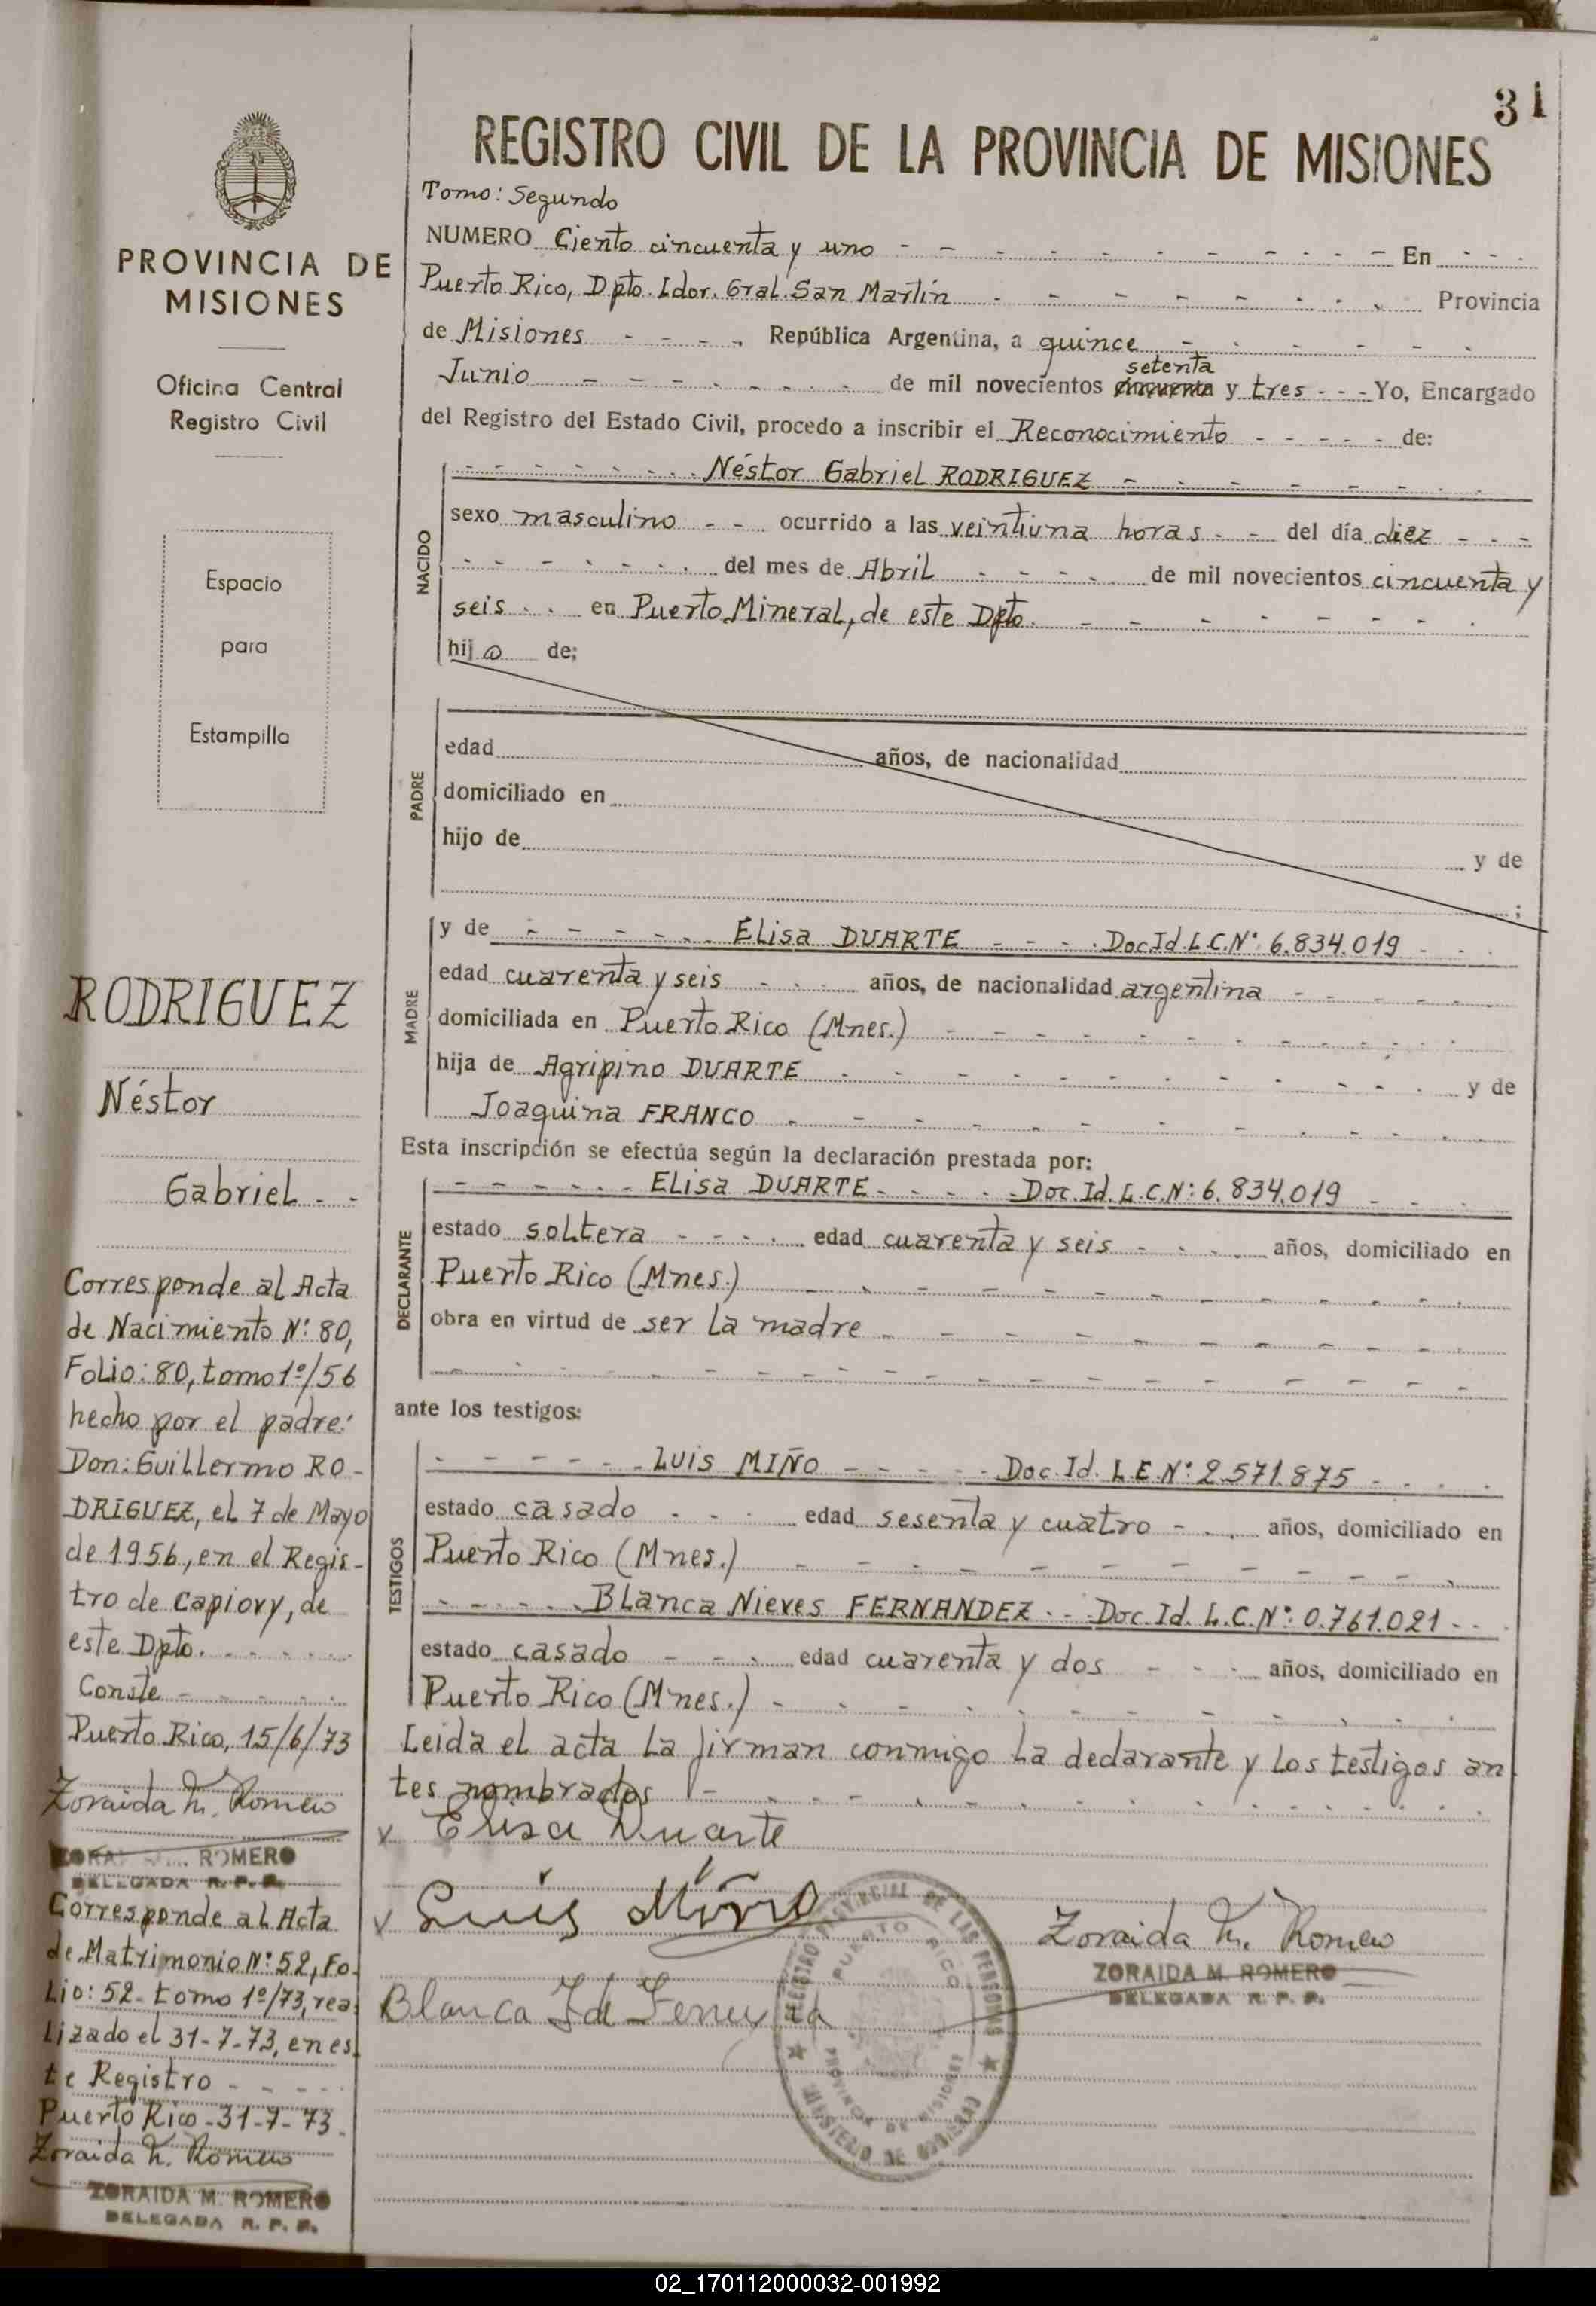 31
REGISTRO CIVIL DE LA PROVINCIA DE MISIONES
Tomo: Segundo
NUMERO Ciento cincuenta y uno - - - En
Puerto Rico, Dpto. Ldor. Gral. San Martín - - - Provincia
de Misiones - - - República Argentina, a quince - - -
setenta
Junio - - - de mil novecientos cincuenta y tres - - - Yo, Encargado
del Registro del Estado Civil, procedo a inscribir el Reconocimiento - - - de:
NACIDO
- - - Néstor Gabriel RODRIGUEZ - - -
sexo masculino - - ocurrido a las veintiuna horas - - del día diez - - -
- - - del mes de Abril - - - de mil novecientos cincuenta y
seis - - en Puerto Mineral, de este Dpto. - - -
hijo de;
PADRE
edad años, de nacionalidad
domiciliado en
hijo de y de
;
MADRE
y de - - - Elisa DUARTE - - - Doc.Id.L.C.N°: 6.834.019 - - -
edad cuarenta y seis - - - años, de nacionalidad argentina - - -
domiciliada en Puerto Rico (Mnes.) - - -
hija de Agripino DUARTE - - - y de
Joaquina FRANCO - - -
Esta inscripción se efectúa según la declaración prestada por:
DECLARANTE
- - - Elisa DUARTE - - - Doc.Id.L.C.N°: 6.834.019 - - -
estado soltera - - - edad cuarenta y seis - - - años, domiciliado en
Puerto Rico (Mnes.) - - -
obra en virtud de ser la madre - - -
ante los testigos:
TESTIGOS
- - - Luis MIÑO - - - Doc.Id. L.E.N°: 2.571.875 - - -
estado casado - - - edad sesenta y cuatro - - - años, domiciliado en
Puerto Rico (Mnes.) - - -
- - - Blanca Nieves FERNANDEZ - - Doc.Id. L.C.N°: 0.761.021 - -
estado casado - - - edad cuarenta y dos - - - años, domiciliado en
Puerto Rico (Mnes.) - - -
Leida el acta la firman conmigo la declarante y los testigos an
tes nombrados - - -
x Elisa Duarte
x Luis Miño
Blanca
Zoraida M. Romero
ZORAIDA M. ROMERO
DELEGADA R. P. P.
REGISTRO PROVINCIAL DE LAS PERSONAS
PUERTO RICO
PROVINCIA DE MISIONES
MINISTERIO DE GOBIERNO
PROVINCIA DE
MISIONES
Oficina Central
Registro Civil
Espacio
para
Estampilla
RODRIGUEZ
Néstor
Gabriel - -
Corresponde al Acta
de Nacimiento N°: 80,
Folio: 80, tomo 1º/56
hecho por el padre:
Don: Guillermo RO-
DRIGUEZ, el 7 de Mayo
de 1956, en el Regis-
tro de Capiovy, de
este Dpto. - - -
Conste - - -
Puerto Rico, 15/6/73
Zoraida M. Romero
ROMERO
DELEGADA R. P. P.
Corresponde al Acta
de Matrimonio N°: 52, Fo-
lio: 52- tomo 1º/73, rea-
lizado el 31-7-73, en es-
te Registro - - -
Puerto Rico - 31-7-73.
Zoraida M. Romero
ZORAIDA M. ROMERO
DELEGADA R. P. P.
02_170112000032-001992